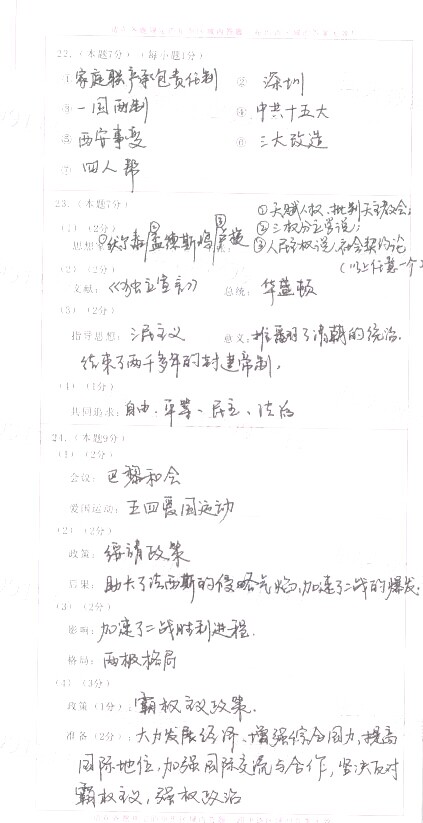 22.(本题7分)(每小题1分)
① 家庭联产承包责任制 ② 深圳
③ 一国两制 ④ 中共十五大
⑤ 西安事变 ⑥ 三大改造
⑦ 四人帮
23.(本题7分)
①天赋人权、批判天主教会;
(1)(2分) ②三权分立学说;
思想家:①伏尔泰②孟德斯鸠③卢梭 ③人民主权说、社会契约论
(以上任意一个)
(2)(2分)
文献:《独立宣言》 总统:华盛顿
(3)(2分)
指导思想:三民主义 意义:推翻了清朝的统治.
结束了两千多年的封建帝制。
(4)(1分)
共同追求:自由、平等、民主、法治
24.(本题9分)
(1)(2分)
会议:巴黎和会
爱国运动:五四爱国运动
(2)(2分)
政策:绥靖政策
后果:助长了法西斯的侵略气焰,加速了二战的爆发.
(3)(2分)
影响:加速了二战胜利进程.
格局:两极格局
(4)(3分)
政策(1分):霸权主义政策.
准备(2分):大力发展经济、增强综合国力、提高
国际地位,加强国际交流与合作,坚决反对
霸权主义,强权政治